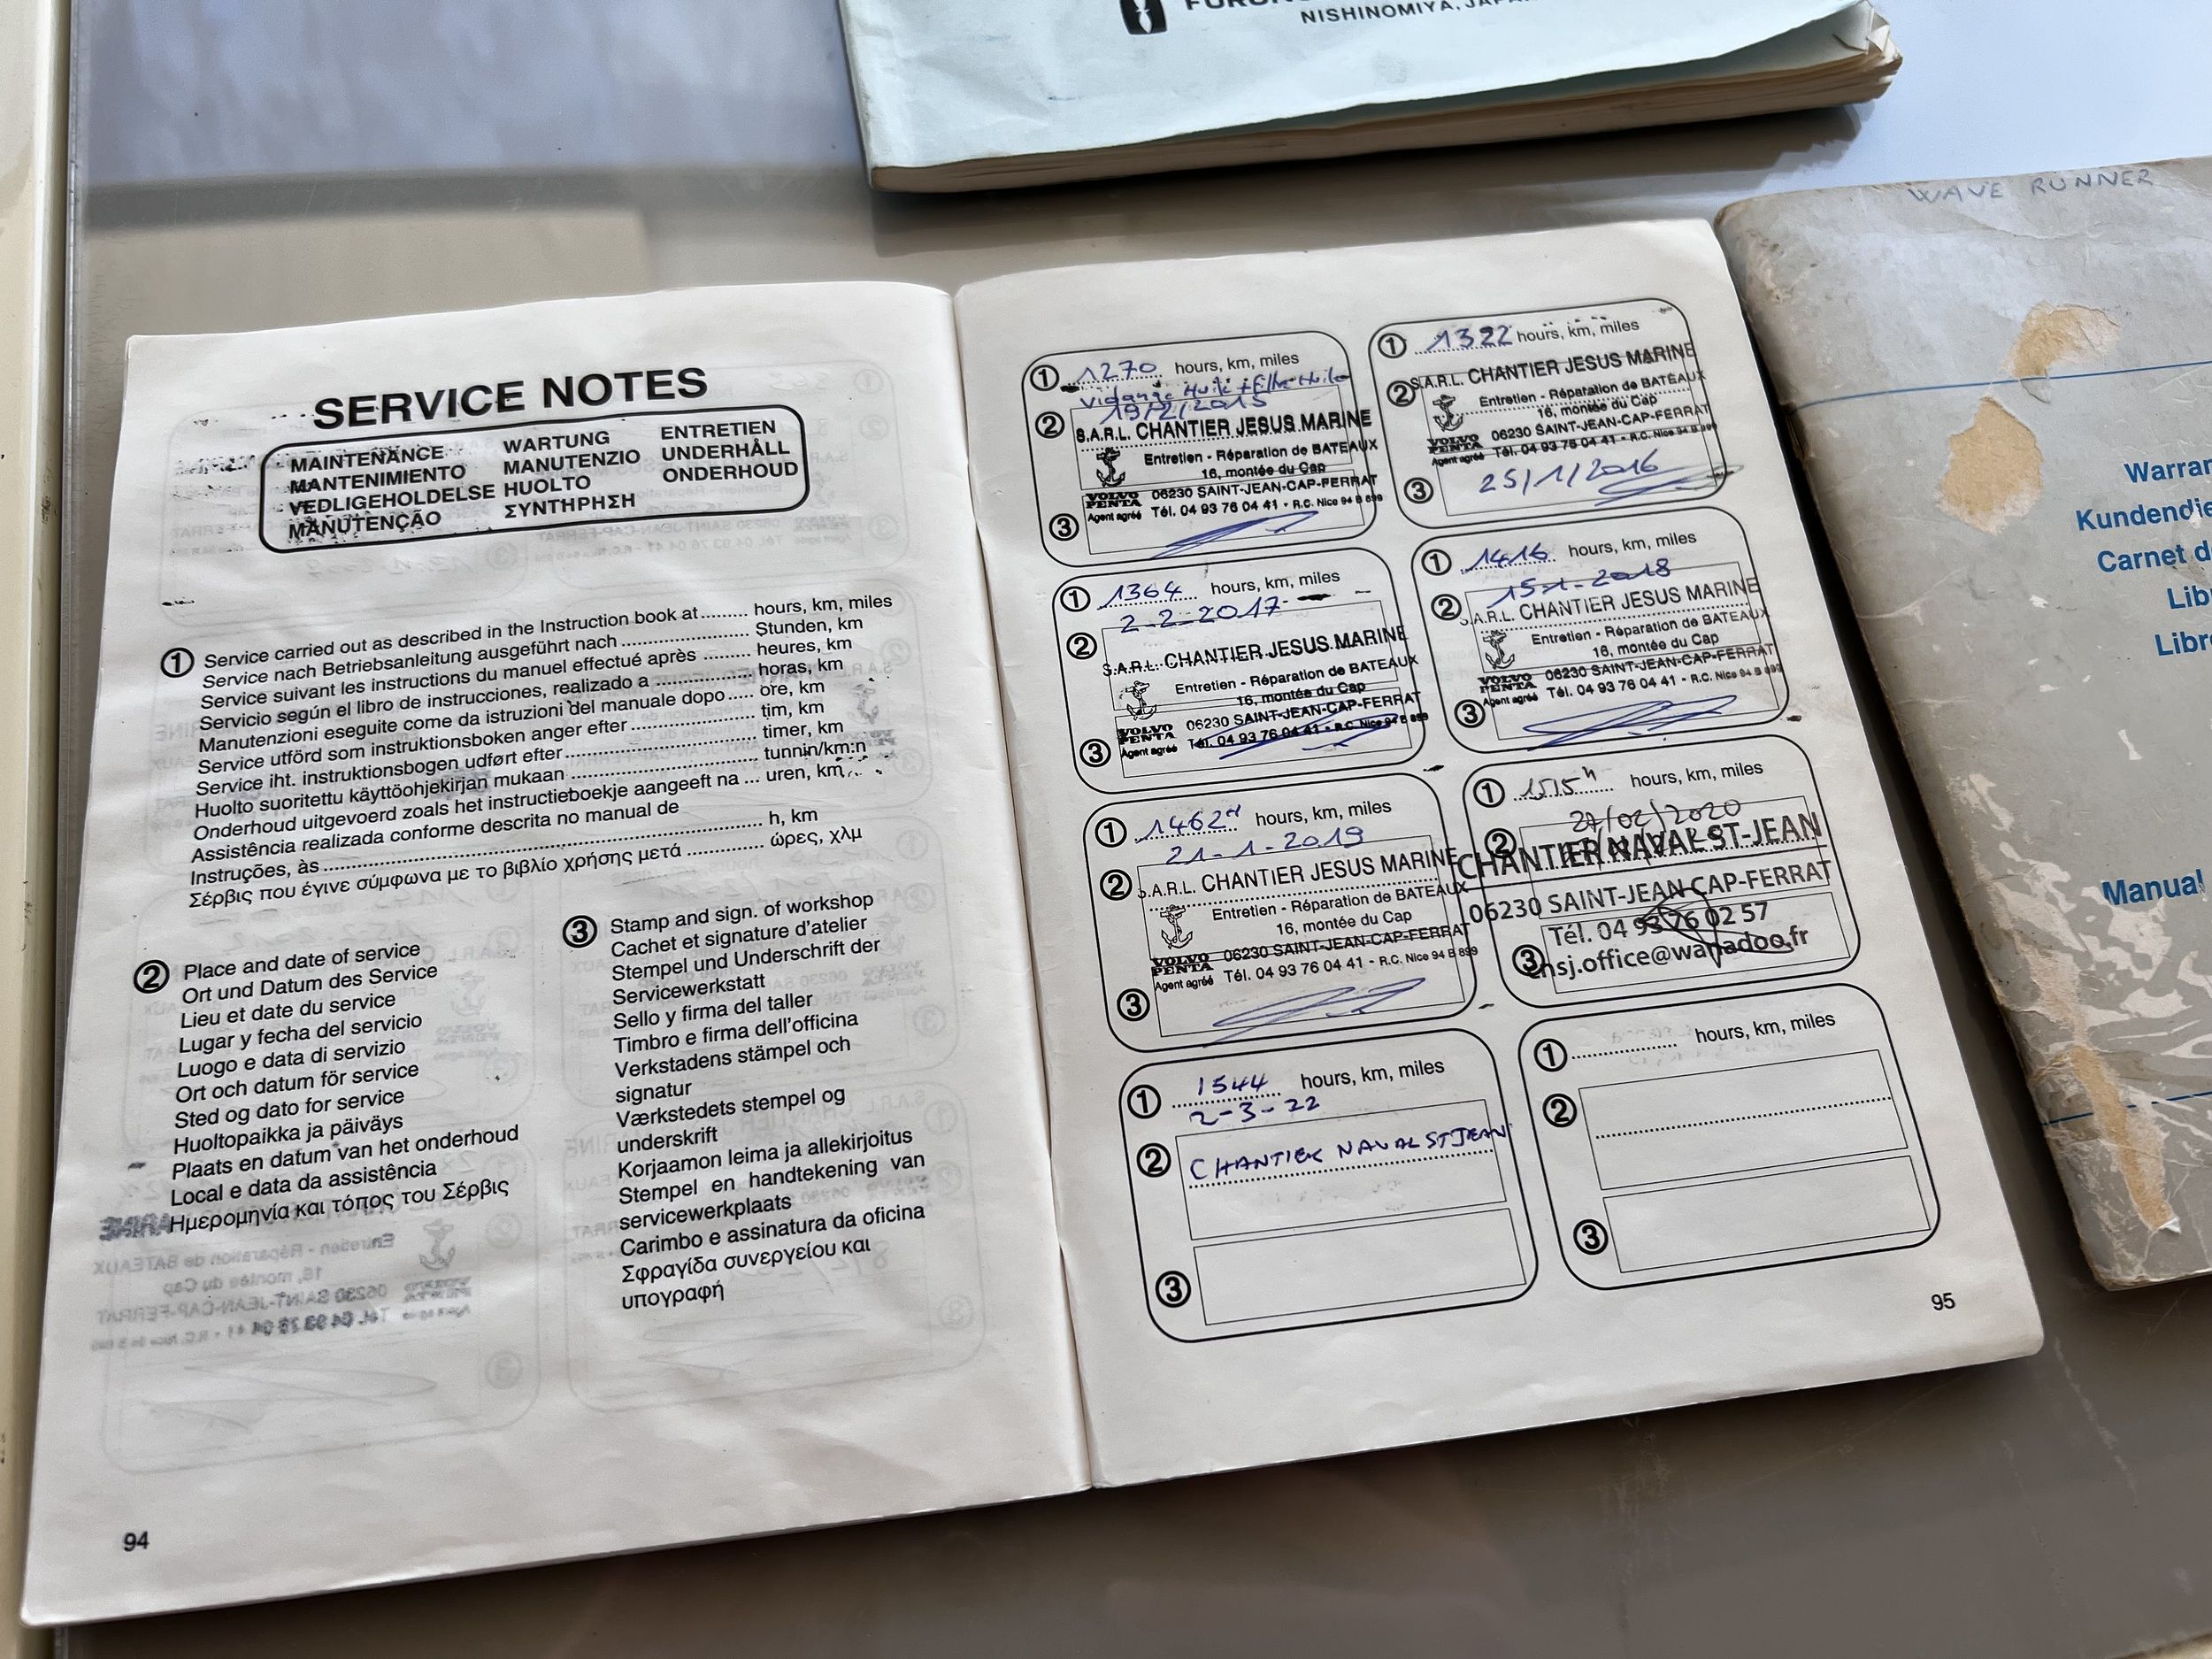 NISHINOMIYA, JAPA
WAVE RUNNER
SERVICE NOTES
MAINTENANCE WARTUNG ENTRETIEN
MANTENIMIENTO MANUTENZIO UNDERHÅLL
VEDLIGEHOLDELSE HUOLTO ONDERHOUD
MANUTENÇÃO ΣΥΝΤΗΡΗΣΗ
① Service carried out as described in the Instruction book at ........ hours, km, miles
Service nach Betriebsanleitung ausgeführt nach ...................... Stunden, km
Service suivant les instructions du manuel effectué après ........ heures, km
Servicio según el libro de instrucciones, realizado a ................ horas, km
Manutenzioni eseguite come da istruzioni del manuale dopo ..... ore, km
Service utförd som instruktionsboken anger efter .................... tim, km
Service iht. instruktionsbogen udført efter ................................ timer, km
Huolto suoritettu käyttöohjekirjan mukaan .............................. tunnin/km:n
Onderhoud uitgevoerd zoals het instructieboekje aangeeft na ... uren, km
Assistência realizada conforme descrita no manual de
Instruções, às ........................................................................ h, km
Σέρβις που έγινε σύμφωνα με το βιβλίο χρήσης μετά ............. ώρες, χλμ
② Place and date of service
Ort und Datum des Service
Lieu et date du service
Lugar y fecha del servicio
Luogo e data di servizio
Ort och datum för service
Sted og dato for service
Huoltopaikka ja päiväys
Plaats en datum van het onderhoud
Local e data da assistência
Ημερομηνία και τόπος του Σέρβις
③ Stamp and sign. of workshop
Cachet et signature d'atelier
Stempel und Underschrift der
Servicewerkstatt
Sello y firma del taller
Timbro e firma dell'officina
Verkstadens stämpel och
signatur
Værkstedets stempel og
underskrift
Korjaamon leima ja allekirjoitus
Stempel en handtekening van
servicewerkplaats
Carimbo e assinatura da oficina
Σφραγίδα συνεργείου και
υπογραφή
94
① 1270 hours, km, miles
Vidange Huile + Filtre Huile
19/2/2015
② S.A.R.L. CHANTIER JESUS MARINE
Entretien - Réparation de BATEAUX
16, montée du Cap
VOLVO PENTA 06230 SAINT-JEAN-CAP-FERRAT
Agent agréé Tél. 04 93 76 04 41 - R.C. Nice 94 B 899
③
① 1322 hours, km, miles
② S.A.R.L. CHANTIER JESUS MARINE
Entretien - Réparation de BATEAUX
16, montée du Cap
VOLVO PENTA 06230 SAINT-JEAN-CAP-FERRAT
Agent agréé Tél. 04 93 76 04 41 - R.C. Nice 94 B 899
③ 25/1/2016
① 1364 hours, km, miles
2-2-2017
② S.A.R.L. CHANTIER JESUS MARINE
Entretien - Réparation de BATEAUX
16, montée du Cap
VOLVO PENTA 06230 SAINT-JEAN-CAP-FERRAT
③ Agent agréé Tél. 04 93 76 04 41 - R.C. Nice 94 B 899
① 1416 hours, km, miles
15-1-2018
② S.A.R.L. CHANTIER JESUS MARINE
Entretien - Réparation de BATEAUX
16, montée du Cap
VOLVO PENTA 06230 SAINT-JEAN-CAP-FERRAT
③ Agent agréé Tél. 04 93 76 04 41 - R.C. Nice 94 B 899
① 1462H hours, km, miles
21-1-2019
② S.A.R.L. CHANTIER JESUS MARINE
Entretien - Réparation de BATEAUX
16, montée du Cap
VOLVO PENTA 06230 SAINT-JEAN-CAP-FERRAT
Agent agréé Tél. 04 93 76 04 41 - R.C. Nice 94 B 899
③
① 1515h hours, km, miles
27/02/2020
② CHANTIER NAVAL ST-JEAN
06230 SAINT-JEAN CAP-FERRAT
Tél. 04 93 76 02 57
③ cnsj.office@wanadoo.fr
① 1544 hours, km, miles
2-3-22
② CHANTIER NAVAL ST JEAN
③
① hours, km, miles
②
③
95
Warran
Kundendie
Carnet d
Lib
Libr
Manual